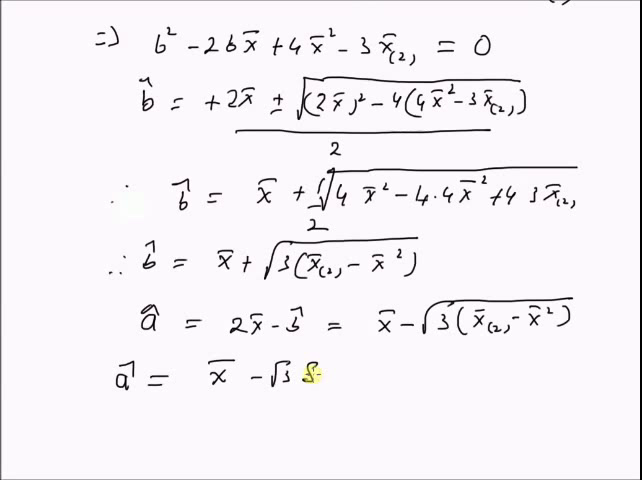 ⇒ b² - 2b x̄ + 4x̄² - 3x̄₍₂₎ = 0
b̂ = + 2x̄ ± √((2x̄)² - 4(4x̄² - 3x̄₍₂₎)) / 2
∴ b̂ = x̄ + 1/2 √(4 x̄² - 4·4x̄² + 4 3x̄₍₂₎)
∴ b̂ = x̄ + √(3(x̄₍₂₎ - x̄²))
â = 2x̄ - b̂ = x̄ - √(3(x̄₍₂₎ - x̄²))
â = x̄ - √3 S